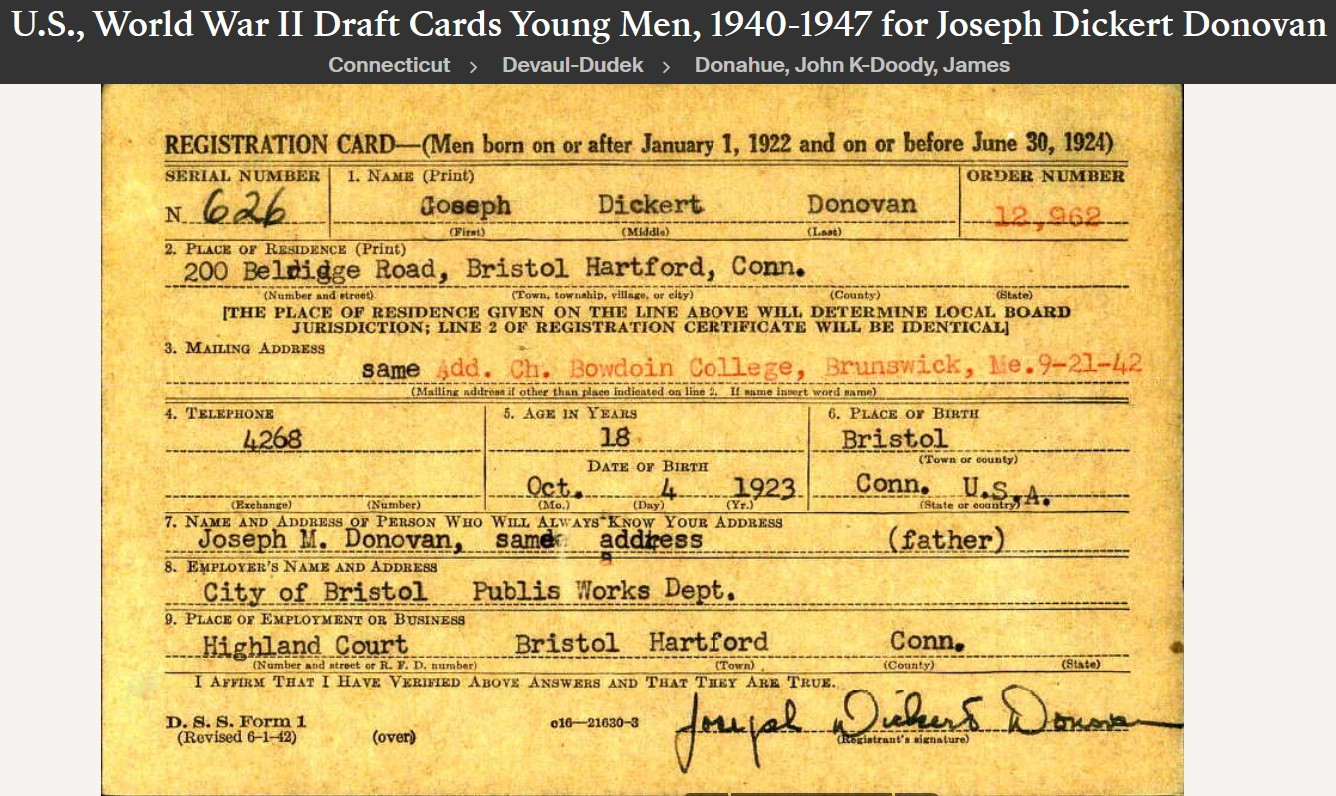 U.S., World War II Draft Cards Young Men, 1940-1947 for Joseph Dickert Donovan
Connecticut > Devaul-Dudek > Donahue, John K-Doody, James
REGISTRATION CARD—(Men born on or after January 1, 1922 and on or before June 30, 1924)
SERIAL NUMBER 1. NAME (Print) ORDER NUMBER
N 626 Joseph Dickert Donovan 12,962
(First) (Middle) (Last)
2. PLACE OF RESIDENCE (Print)
200 Beldidge Road, Bristol Hartford, Conn.
(Number and street) (Town, township, village, or city) (County) (State)
[THE PLACE OF RESIDENCE GIVEN ON THE LINE ABOVE WILL DETERMINE LOCAL BOARD
JURISDICTION; LINE 2 OF REGISTRATION CERTIFICATE WILL BE IDENTICAL]
3. MAILING ADDRESS
same Add. Ch. Bowdoin College, Brunswick, Me.9-21-42
(Mailing address if other than place indicated on line 2. If same insert word same)
4. TELEPHONE 5. AGE IN YEARS 6. PLACE OF BIRTH
4268 18 Bristol
(Town or county)
DATE OF BIRTH
Oct. 4 1923 Conn. U.S.A.
(Exchange) (Number) (Mo.) (Day) (Yr.) (State or country)
7. NAME AND ADDRESS OF PERSON WHO WILL ALWAYS KNOW YOUR ADDRESS
Joseph M. Donovan, same address (father)
8. EMPLOYER'S NAME AND ADDRESS
City of Bristol Publis Works Dept.
9. PLACE OF EMPLOYMENT OR BUSINESS
Highland Court Bristol Hartford Conn.
(Number and street or R. F. D. number) (Town) (County) (State)
I AFFIRM THAT I HAVE VERIFIED ABOVE ANSWERS AND THAT THEY ARE TRUE.
D. S. S. Form 1 c16—21630-3 Joseph Dickert Donovan
(Revised 6-1-42) (over) (Registrant's signature)